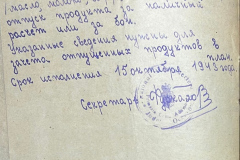 масло, молоко,
отпуск продукта за наличный
расчет или за
Указанные сведения нужны для
зачета отпущенных продуктов в план.
Срок исполнения 15 октября 1943 года.
Секретарь